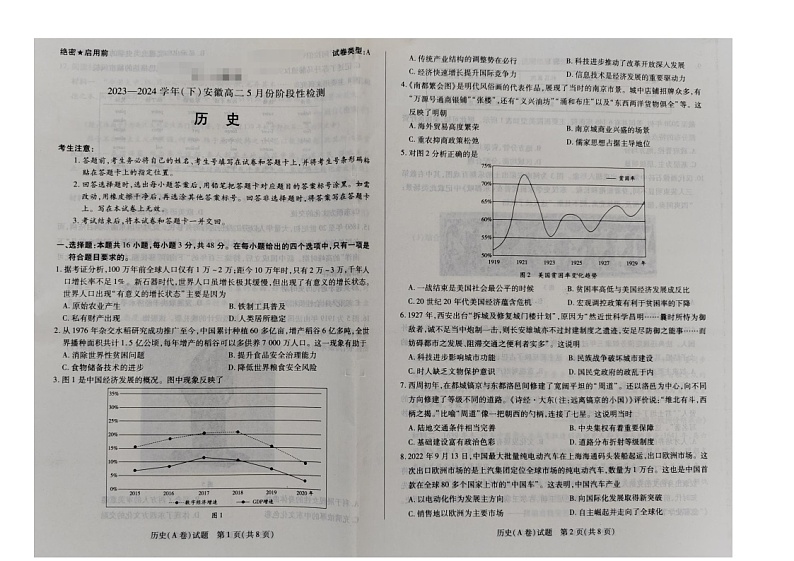 绝密★启用前
试卷类型:A
2023—2024 学年(下)安徽高二 5 月份阶段性检测
历 史
考生注意:
1. 答题前,考生务必将自己的姓名、考生号填写在试卷和答题卡上,并将考生号条形码粘
贴在答题卡上的指定位置。
2. 回答选择题时,选出每小题答案后,用铅笔把答题卡对应题目的答案标号涂黑。如需
改动,用橡皮擦干净后,再选涂其他答案标号。回答非选择题时,将答案写在答题卡
上。写在本试卷上无效。
3. 考试结束后,将本试卷和答题卡一并交回。
一、选择题:本题共 16 小题,每小题 3 分,共 48 分。在每小题给出的四个选项中,只有一项是
符合题目要求的。
1. 据考证分析,100 万年前全球人口仅有 1 万 - 2 万;距今 10 万年时,只有 2 万 - 3 万,千年人
口增长率不足 1%。新石器时代,世界人口虽增长极其缓慢,但出现了有意义的增长状态。
世界人口出现“有意义的增长状态”主要是因为
A. 原始农业产生
B. 铁制工具普及
C. 私有财产出现
D. 人类居所稳定
2. 从 1976 年杂交水稻研究成功推广至今,中国累计种植 60 多亿亩,增产稻谷 6 亿多吨,全世
界播种面积共计 1.5 亿公顷,每年增产的稻谷可以多供养 7 000 万人口。这一现象有助于
A. 消除世界性贫困问题
B. 提升食品安全治理能力
C. 食物储备技术的进步
D. 降低世界粮食安全风险
3. 图 1 是中国经济发展的概况。图中现象反映了
35%
30%
25%
20%
15%
10%
5%
0%
2015 2016 2017 2018 2019 2020 年
数字经济增速 GDP增速
图 1
历史(A 卷)试题 第 1 页(共 8 页)
A. 传统产业结构的调整势在必行
B. 科技进步推动了改革开放深入发展
C. 经济快速增长提升国际竞争力
D. 信息技术是经济发展的重要驱动力
4. 《南都繁会图》是明代风俗画的代表作品,展现了当时的南京市景。城中店铺招牌众多,有
“万源号通商银铺”“张楼”,还有“义兴油坊”“涌和布庄”以及“东西两洋货物俱全”等。这
反映了明朝
A. 海外贸易高度繁荣
B. 南京城商业兴盛的场景
C. 重农抑商政策松弛
D. 儒家思想占据主导地位
5. 对图 2 分析正确的是
75%
70%
65%
60%
55%
50%
贫困率
1919 1921 1923 1925 1927 1929 年
图 2 美国贫困率变化趋势
A. 一战结束是美国社会最公平的时候
B. 贫困率高低与美国经济发展成反比
C. 20 世纪 20 年代美国经济蕴含危机
D. 宏观调控政策有利于贫困率的下降
6. 1927 年,西安出台“拆城及修复城门楼计划”,原因为“然近世科学昌明……曩时所恃为御
敌者,诚不足当中炮制一击,则长安雄城亦不过封建制度之遗迹,安足尽防御之能事……而
妨碍都市之发展,阻塞交通之便利者实多”。这说明
A. 科技进步影响城市功能
B. 民族战争破坏城市建设
C. 时人缺乏文物保护意识
D. 国民党政府的政乱于内
7. 西周初年,在都城镐京与东都洛邑间修建了宽阔平坦的“周道”。还以洛邑为中心,向不同
方向修建了等级不同的道路。《诗经·大东(注:远离镐京的小国)》评价说:“维北有斗,西
柄之揭。”比喻“周道”像一把朝西的勺柄,连接了七星。这说明当时
A. 陆地交通条件相当完善
B. 中央集权有着重要保障
C. 基础建设富有政治色彩
D. 道路分布折射等级制度
8. 2022 年 9 月 13 日,中国最大批量纯电动汽车在上海海通码头装船起运,出口欧洲市场。这
次出口欧洲市场的是上汽集团定位全球市场的纯电动汽车,数量为 1 万台。这也是中国首
款在全球 80 多个国家上市的“中国车”。这表明,中国汽车产业
A. 以电动化作为发展主方向
B. 向国际化发展取得新突破
C. 销售地以欧洲为主要市场
D. 自主崛起并走向了全球化
历史(A 卷)试题 第 2 页(共 8 页)